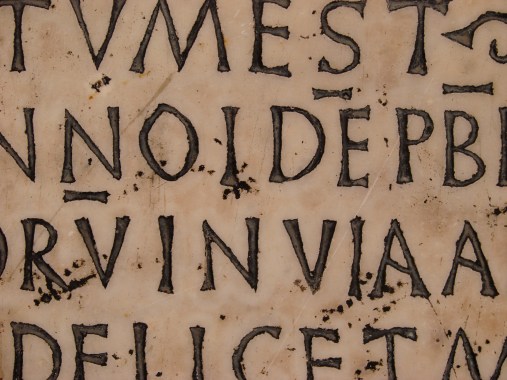 TVM EST
NNO I DĒ PB̄
ORV̄ IN VIA A
DELICET M